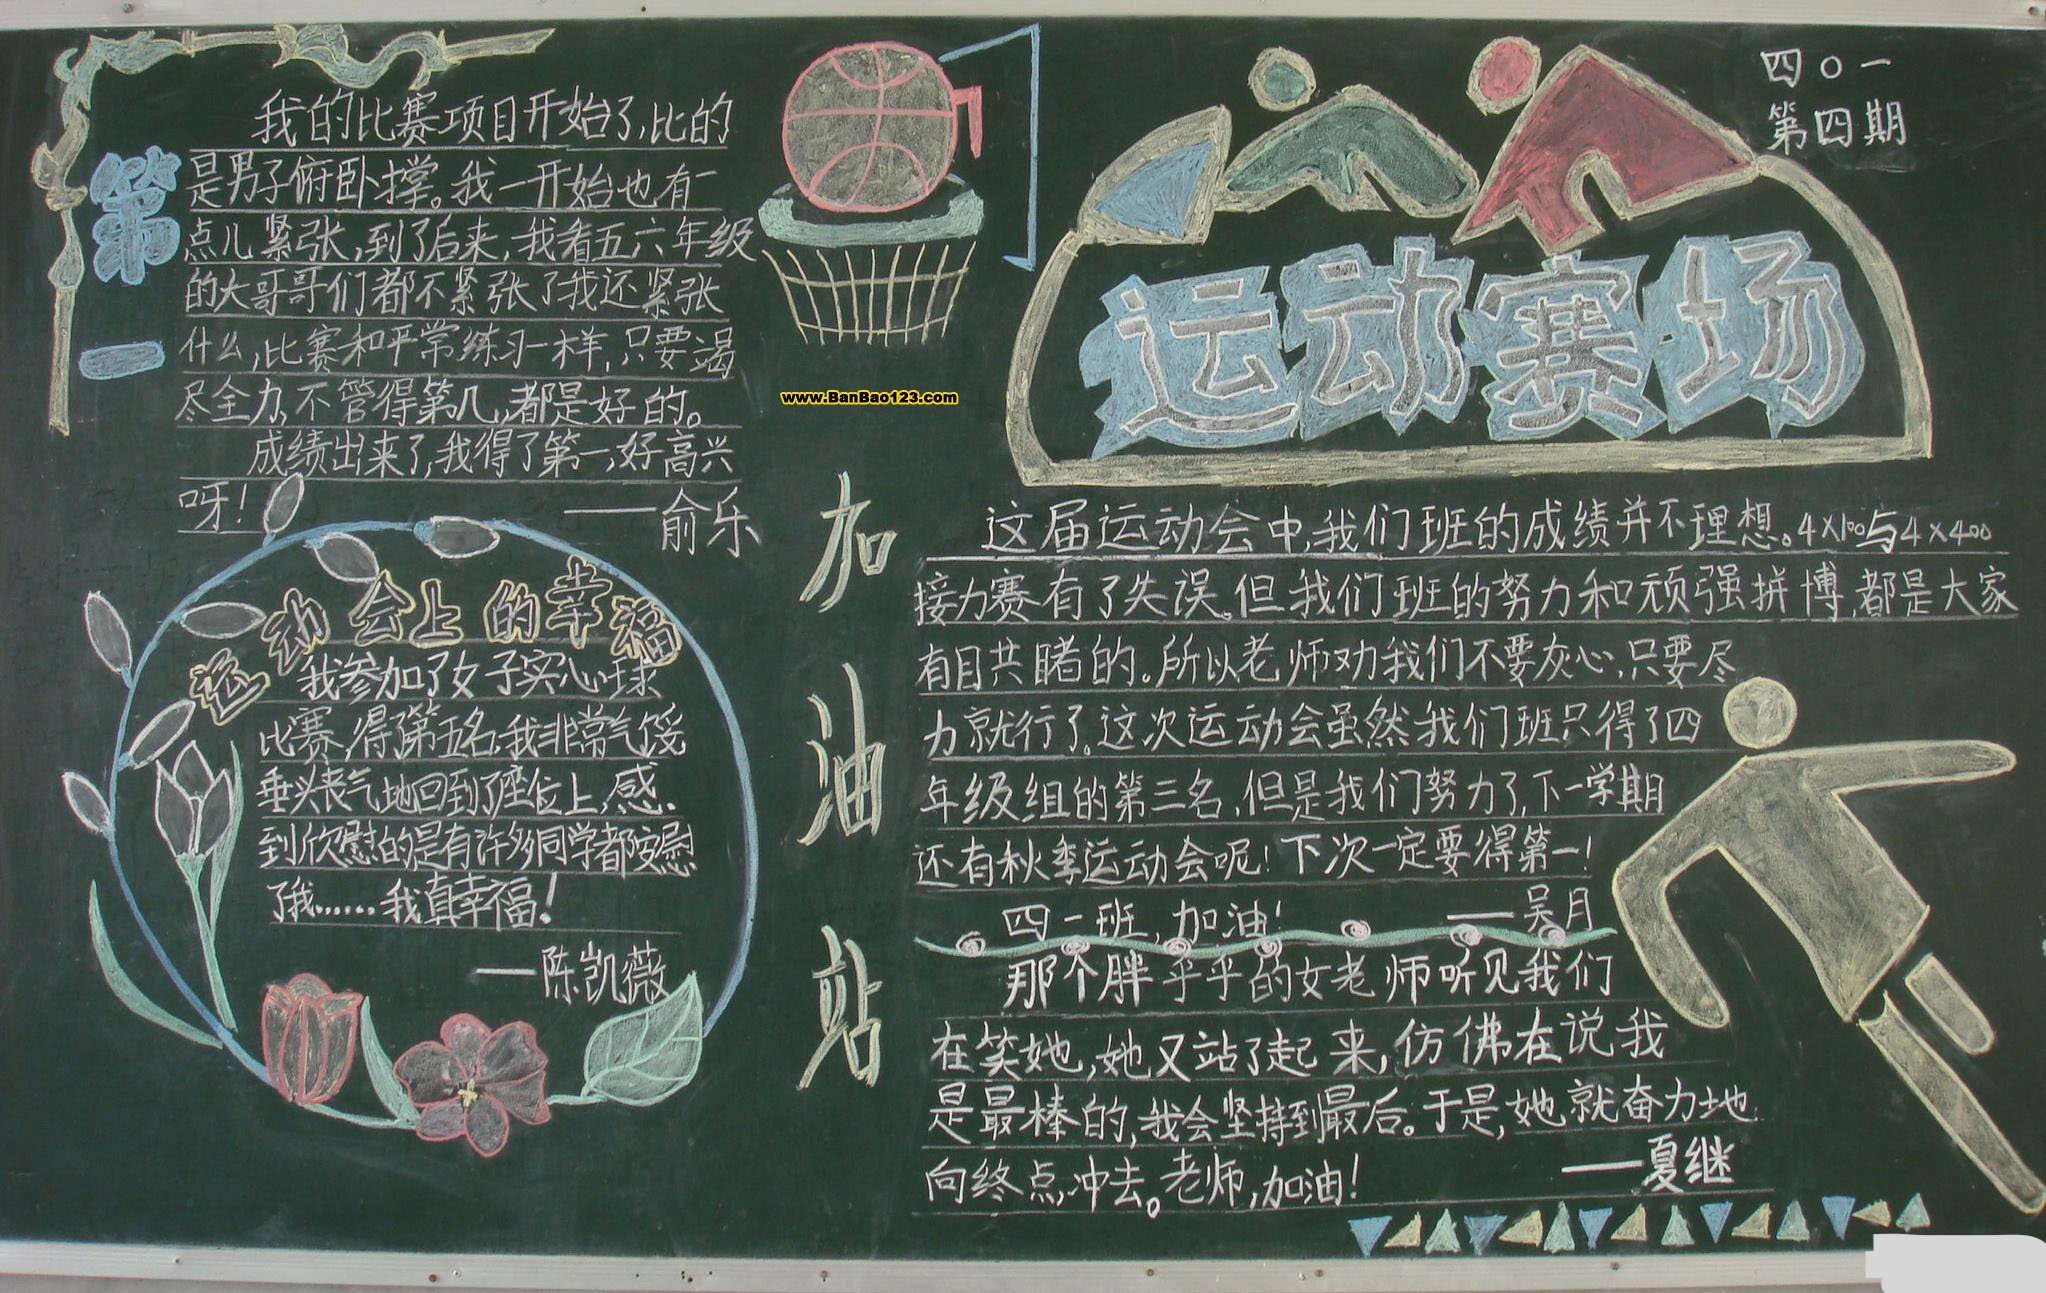 四〇一
第四期
运动赛场
第一
我的比赛项目开始了,比的
是男子俯卧撑。我一开始也有一
点儿紧张,到了后来,我看五六年级
的大哥哥们都不紧张了我还紧张
什么,比赛和平常练习一样,只要竭
尽全力,不管得第几,都是好的。
成绩出来了,我得了第一,好高兴
呀!
——俞乐
www.BanBao123.com
运动会上的幸福
我参加了女子实心球
比赛,得了第五名,我非常气馁
垂头丧气地回到了座位上,感
到欣慰的是有许多同学都安慰
了我……我真幸福!
——陈凯薇
加油站
这届运动会中,我们班的成绩并不理想。4×100与4×400
接力赛有了失误。但我们班的努力和顽强拼博,都是大家
有目共睹的。所以老师劝我们不要灰心,只要尽
力就行了。这次运动会虽然我们班只得了四
年级组的第三名,但是我们努力了,下一学期
还有秋季运动会呢!下次一定要得第一!
四一班,加油!
——吴月
那个胖乎乎的女老师听见我们
在笑她,她又站了起来,仿佛在说我
是最棒的,我会坚持到最后。于是,她就奋力地
向终点冲去。老师,加油!
——夏继